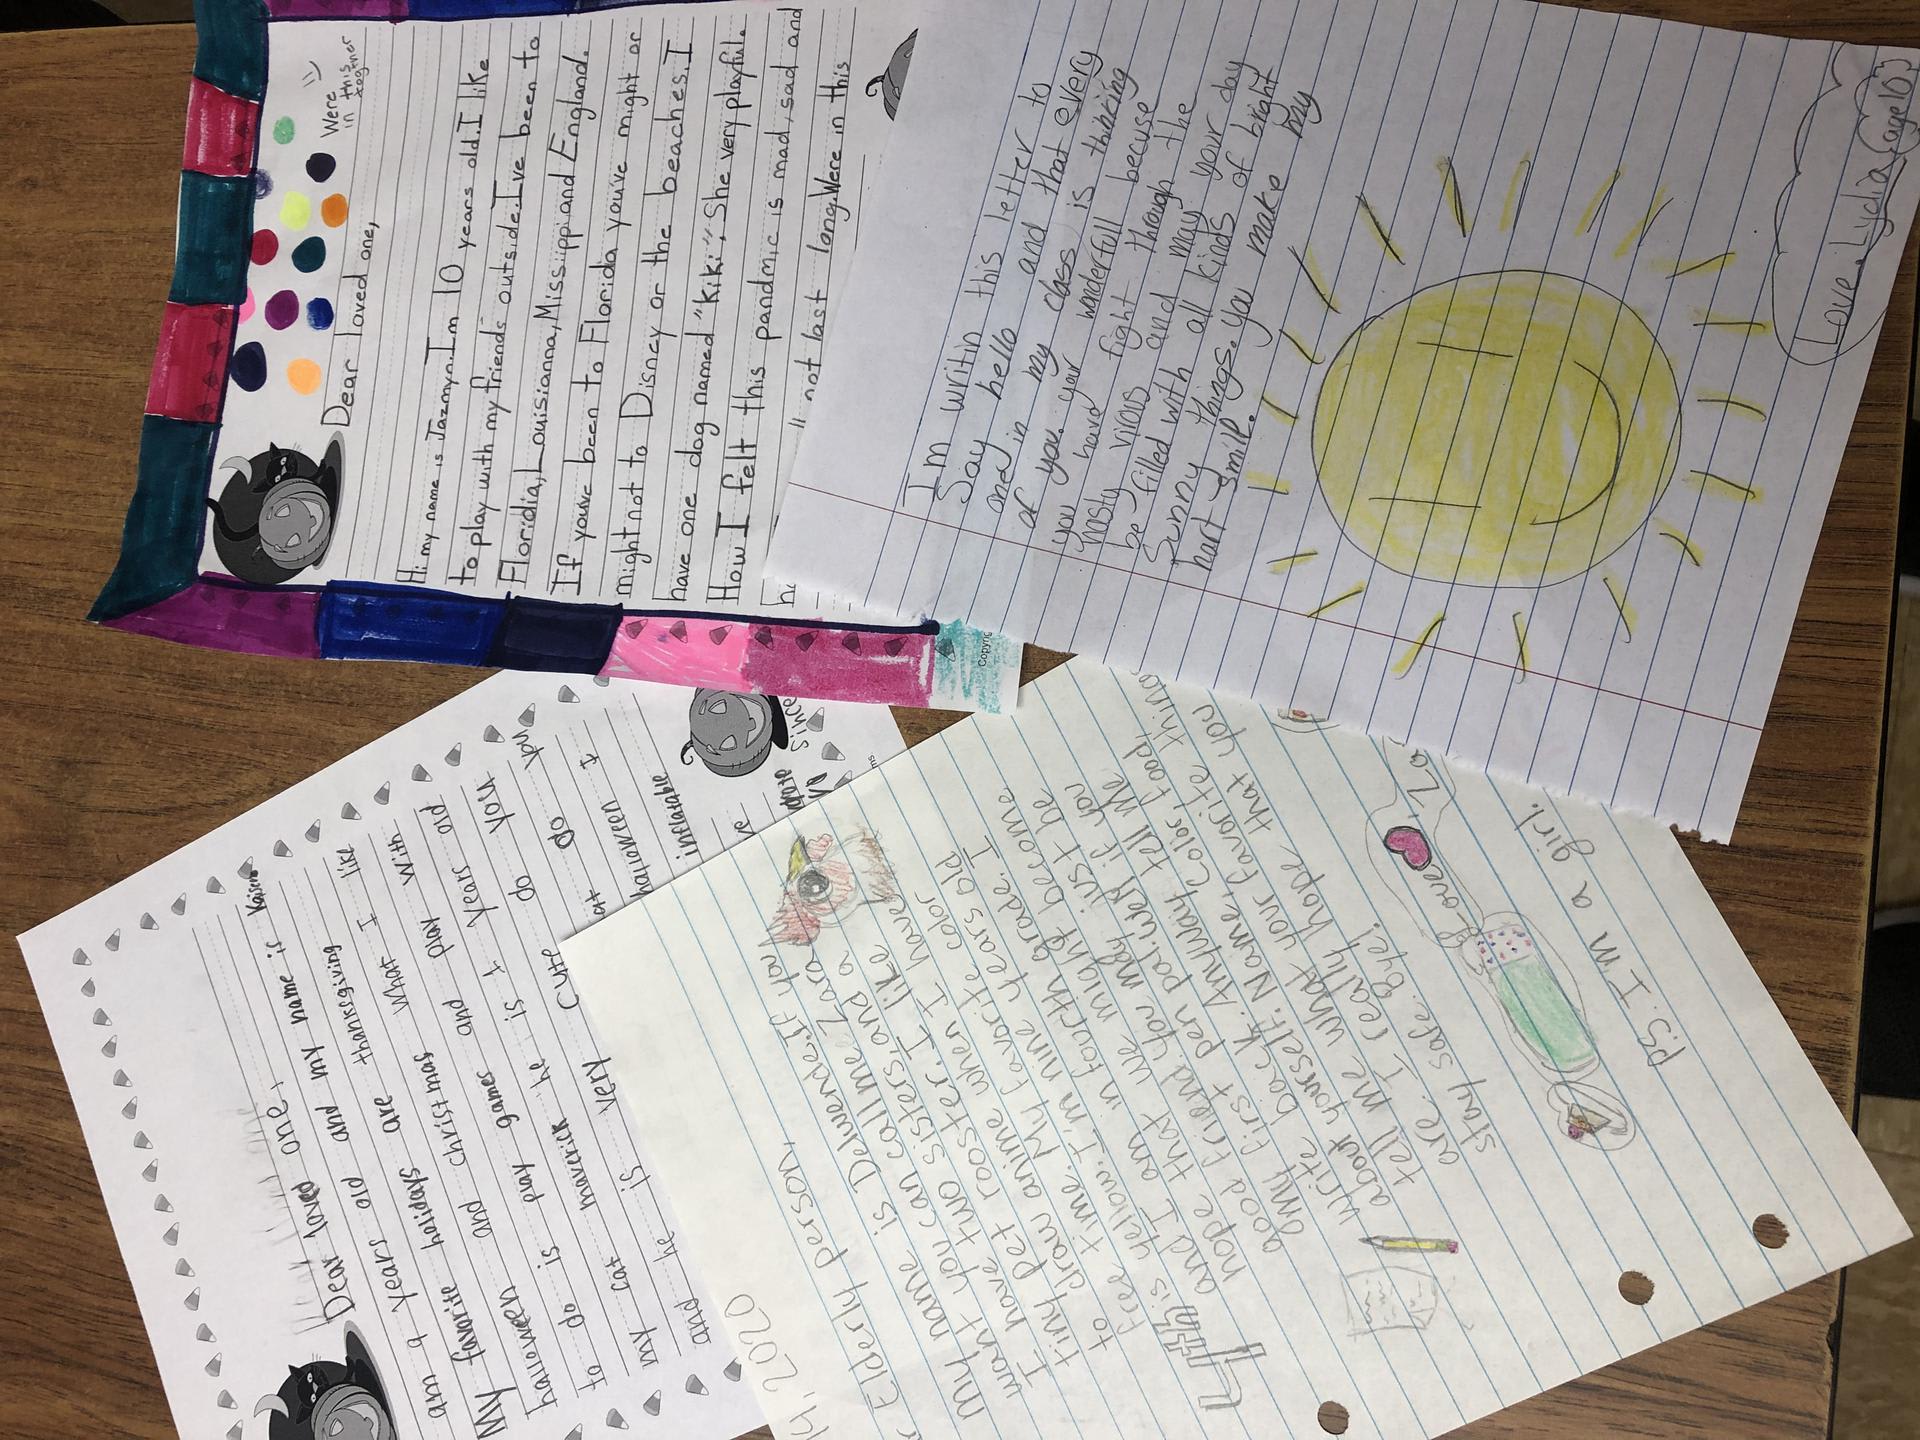 Were
in this
together
Dear loved one,
Hi my name is Jazmyn. I'm 10 years old. I like
to play with my friends outside. I've been to
Floridia, Louisianna, Mississippi and England.
If youve been to Florida youve might or
might not to Disney or the beaches. I
have one dog named "Kiki". She very playful.
How I felt this pandmic is mad, sad and
ll not last long. Were in this
Copyrig
I'm writin this letter to
Say hello and that every
one in my class is thinking
of you. your wonderfull becuse
you have fight through the
nasty virous and may your day
be filled with all kinds of bright
Sunny things. you make my
hart smile.
Love, Lydia (age 10)
Dear loved one,
and my name is Kaiseno
am 9 years old and
My favorite holidays are thanksgiving
halloween and christmas what I like
to do is play games and play with
my cat maverick he is 4 years old
and he is very cute do you
at do do you
halloween I
inflatable
Since
14, 2020
Elderly person,
My name is Delwende. If you
want you can call me Zara
I have two sisters, and a
tiny pet rooster. I like
to draw anime when I have
free time. My favorite color
is yellow. I'm nine years old
and I am in fourth grade. I
hope that we might become
good friend. you may just be
my first pen pal. well if you
write back. Anyway tell me
about yourself: Name, Color, Food,
tell me what your favorite thing
are. I really hope that you
stay safe. Bye!
Love, Za
P.S. I'm a girl.